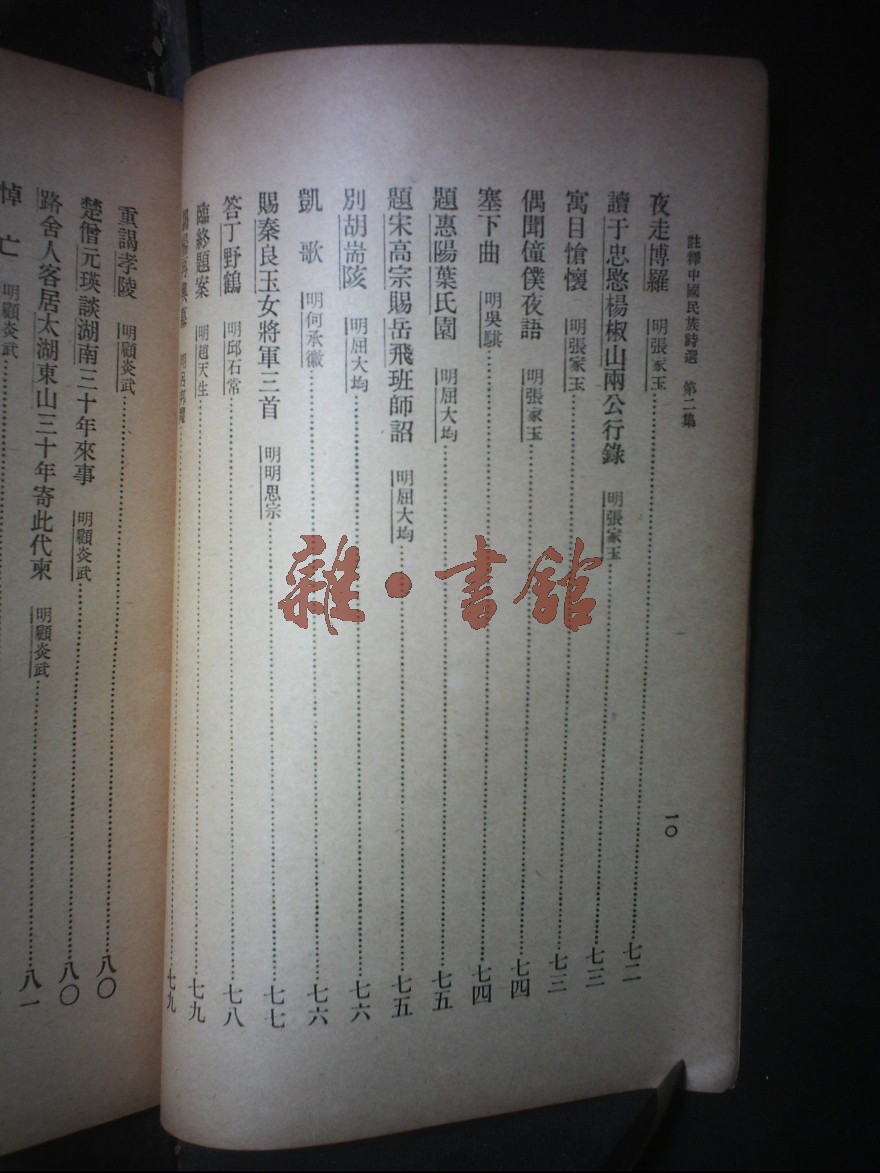 註釋中國民族詩選 第二集
一〇
夜走博羅 明張家玉 七二
讀于忠愍楊椒山兩公行錄 明張家玉 七三
寓目愴懷 明張家玉 七三
偶聞僮僕夜語 明張家玉 七四
塞下曲 明吳騏 七四
題惠陽葉氏園 明屈大均 七五
題宋高宗賜岳飛班師詔 明屈大均 七五
別胡耑陔 明屈大均 七六
凱歌 明何承徽 七六
賜秦良玉女將軍三首 明明思宗 七七
答丁野鶴 明邱石常 七八
臨終題案 明趙天生 七九
七九
重謁孝陵 明顧炎武 八〇
楚僧元瑛談湖南三十年來事 明顧炎武 八〇
路舍人客居太湖東山三十年寄此代柬 明顧炎武 八一
悼亡 明顧炎武
雜·書館